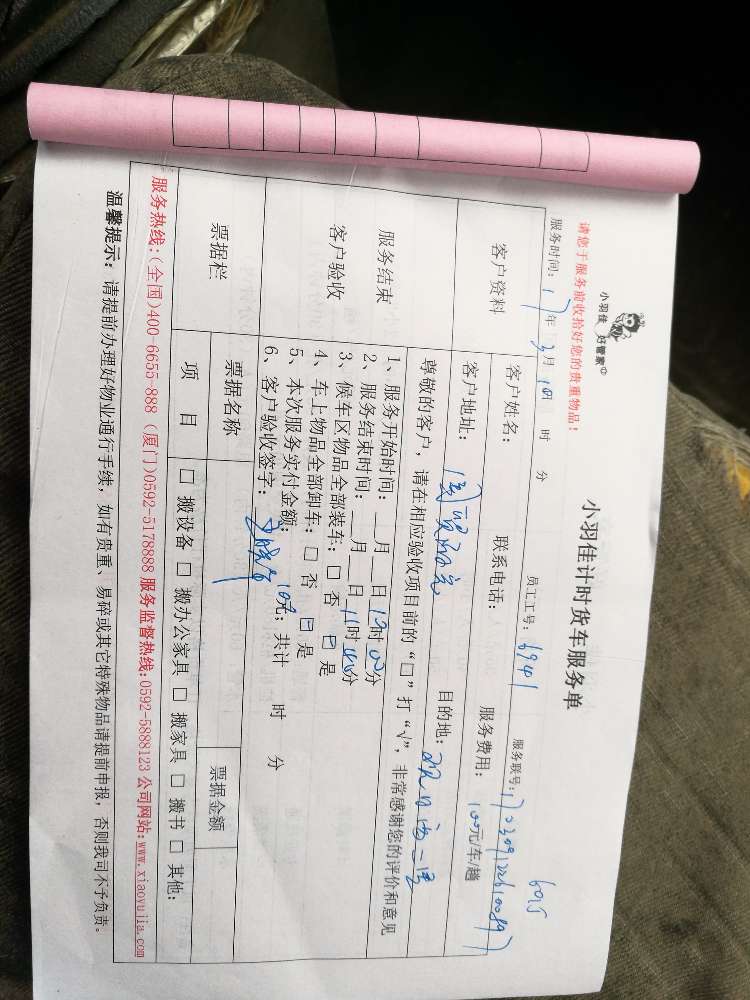 小羽佳 好管家
小羽佳计时货车服务单
请您于服务前收拾好您的贵重物品!
服务时间: 17年 3月 10日 时 分 员工工号: 6941 服务联号:
客户资料
客户姓名: 联系电话: 服务费用: 100元/车/趟
客户地址: 目的地:
服务结束
客户验收
尊敬的客户,请在相应验收项目前的“□”打“√”,非常感谢您的评价和意见
1、服务开始时间: __月__日 时00分
2、服务结束时间: __月__日11时00分
3、候车区物品全部装车: □ 否 ☑ 是
4、车上物品全部卸车: □ 否 ☑ 是
5、本次服务实付金额: 100元, 共计 时 分
6、客户验收签字:
票据栏
票据名称 票据金额
项 目 □ 搬设备 □ 搬办公家具 □ 搬家具 □ 搬书 □ 其他:
服务热线:(全国)400-6655-888 (厦门)0592-5178888 服务监督热线:0592-5888123 公司网站:www.xiaoyujia.com
温馨提示: 请提前办理好物业通行手续,如有贵重、易碎或其它特殊物品请提前申报,否则我司不予负责。